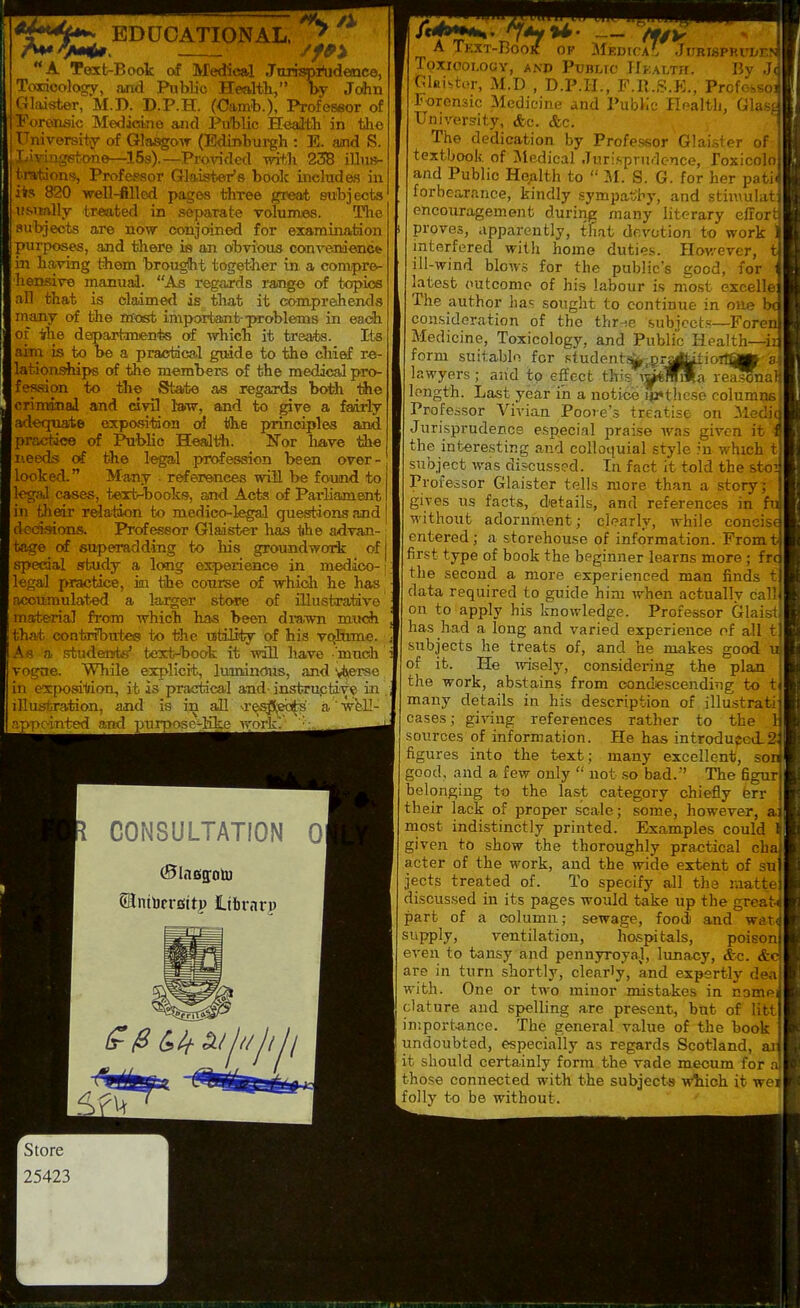 EDUCATIONAL.
"A Text-Book of Medical Jurisprudence,
Toxicology, and Public Health," by John
Glaister, M.D. D.P.H. (Camb.), Professor of
Forensic Medicine and Public Health in the
University of Glasgow (Edinburgh : E. and S.
Livingstone—15s).—Provided with 238 illus-
trations, Professor Glaister's book includes in
its 820 well-filled pages three great subjects
usually treated in separate volumes. The
subjects are now conjoined for examination
purposes, and there is an obvious convenience
in having them brought together in a compre-
hensive manual. "As regards range of topics
all that is claimed is that it comprehends
many of the most important problems in each
of the departments of which it treats. Its
aim is to be a practical guide to the chief re-
lationships of the members of the medical pro-
fession to the State as regards both the
criminal and civil law, and to give a fairly
adequate exposition of the principles and
practice of Public Health. Nor have the
needs of the legal profession been over-
looked." Many references will be found to
legal cases, text-books, and Acts of Parliament
in their relation to medico-legal questions and
decisions. Professor Glaister has the advan-
tage of superadding to his groundwork of
special study a long experience in medico-
legal practice, in the course of which he has
accumulated a larger store of illustrative
material from which has been drawn much
that contributes to the utility of his volume.
As a students' text-book it will have much
vogue. While explicit, luminous, and terse
in exposition, it is practical and instructive in
illustration, and is in all respects a well-
appointed and purpose-like work.
FOR CONSULTATION ONLY
Glasgow
University Library
Store
25423
A Text-Book of Medical Jurispruden
Toxicology, and Public Health. By Jo
Glaister, M.D , D.P.H., F.R.S.E., Professor
Forensic Medicine and Public Health, Glasg
University, &c. &c.
The dedication by Professor Glaister of
textbook of Medical Jurisprudence, Toxicolo
and Public Health to " M. S. G. for her pati
forbearance, kindly sympathy, and stimulat
encouragement during many literary effort
proves, apparently, that devotion to work
interfered with home duties. However, t
ill-wind blows for the public's good, for
latest outcome of his labour is most excelle
The author has sought to continue in one bo
consideration of the three subjects—Foren
Medicine, Toxicology, and Public Health—in
form suitable for students, practitioners, a
lawyers ; and to effect this
length. Last year in a notice in these columns
Professor Vivian Poore's treatise on Medic
Jurisprudence especial praise was given it f
the interesting and colloquial style in which t
subject was discussed. In fact it told the stor
Professor Glaister tells more than a story ;
gives us facts, details, and references in fu
without adornment ; clearly, while concise
entered ; a storehouse of information. From t
first type of book the beginner learns more ; fro
the second a more experienced man finds t
data required to guide him when actually call
on to apply his knowledge. Professor Glaist
has had a long and varied experience of all t
subjects he treats of, and he makes good u
of it. He wisely, considering the plan
the work, abstains from condescending to t
many details in his description of illustrati
cases ; giving references rather to the
sources of information. He has introduced 2
figures into the text ; many excellent, som
good, and a few only " not so bad." The figur
belonging to the last category chiefly err
their lack of proper scale ; some, however, a
most indistinctly printed. Examples could
given to show the thoroughly practical cha
acter of the work, and the wide extent of su
jects treated of. To specify all the matte
discussed in its pages would take up the great
part of a column ; sewage, food and wat
supply, ventilation, hospitals, poison
even to tansy and pennyroyal, lunacy, &c. &c
are in turn shortly, clearly, and expertly dea
with. One or two minor mistakes in nome
clature and spelling are present, but of litt
importance. The general value of the book
undoubted, especially as regards Scotland, an
it should certainly form the vade mecum for a
those connected with the subjects which it wer
folly to be without.